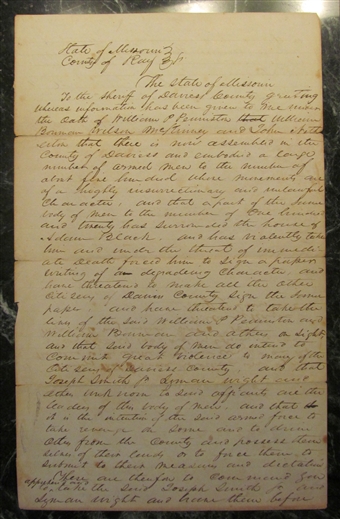 State of Missouri
County of Ray
The State of Missouri
To the Sheriff of Daviess County greeting
whereas information has been given to me upon
the Oath of William P Peniston that William
Bowman Wilson McKinney and John Netherton
that there is now assembled in the
County of Daviess and embodied a large
number of armed men to the number of
about five hundred whose movements are
of a highly insurrectionary and unlawful
Character, and that a part of the same
body of men to the number of One hundred
and twenty has surrounded the house of
Adam Black, and has violently taken
him and under the threat of immedi
ate Death forced him to Sign a paper
writing of degrading Character, and
have threatened to make all the other
Citizens of Daviess County Sign the same
paper and have threatened to take the
lives of the said William P Peniston and
William Bowman and others on sight
and that said body of men do intend to
Commit great violence to many of the
Citizens of Daviess County and that
Joseph Smith Jr Lyman Wight and
other unknown to said affiants are the
leaders of this body of men, and that
it is the intention of the said armed force to
take revenge on Some and to drive
others from the County and possess them
selves of their lands or to force them to
submit to their measures and dictation
These are therefore to Command you
to take the said Joseph Smith Jr and
Lyman Wight and bring them before